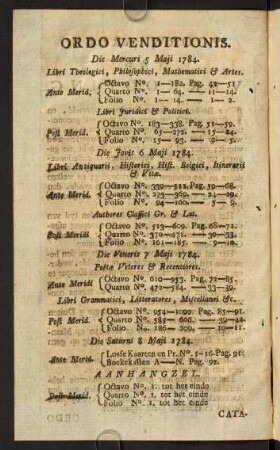 ORDO VENDITIONIS.
Die Mercuri 5 Maji 1784.
Libri Theologici, Philosophici, Mathematici & Artes.
Ante Merid.
Octavo No. 1—182. Pag. 42—51
Quarto No. 1—64. — 11—14.
Folio No. 1—14. — 1—2.
Libri Juridici & Politici.
Post Merid.
Octavo No. 183—338. Pag. 51—59.
Quarto No. 65—272. — 15—24.
Folio No. 15—93. — 2—5.
Die Jovis 6 Maji 1784.
Libri Antiquarii, Historici, Hist. Belgici, Itineraris & Vitæ.
Ante Merid.
Octavo No. 339—512. Pag. 59—68.
Quarto No. 273—369. — 24—29.
Folio No. 94—160. — 5—9.
Authores Classici Gr. & Lat.
Post Meridi
Octavo No. 513—609. Pag. 68—72.
Quarto No. 370—471. — 30—33.
Folio No. 161—185. — 9—10.
Die Veneris 7 Maji 1784.
Poëtæ Veteres & Recentiores.
Ante Meridi
Octavo No. 610—953. Pag. 72—85
Quarto No. 472—584. — 33—39.
Libri Grammatici, Litteratores, Miscellanei &c.
Post Merid.
Octavo No. 954—1099. Pag. 85—91.
Quarto No. 585—666. — 39—42.
Folio No. 186—209. — 10—11.
Die Saturni 8 Maji 1784.
Ante Merid.
Losse Kaerten en Pr. No. 1—16. Pag. 91
Boekekasten A—N. Pag. 92.
AANHANGZEL.
Post Merid.
Octavo No. 1. tot het einde
Quarto No. 1. tot het einde
Folio No. 1. tot het einde
CATA-